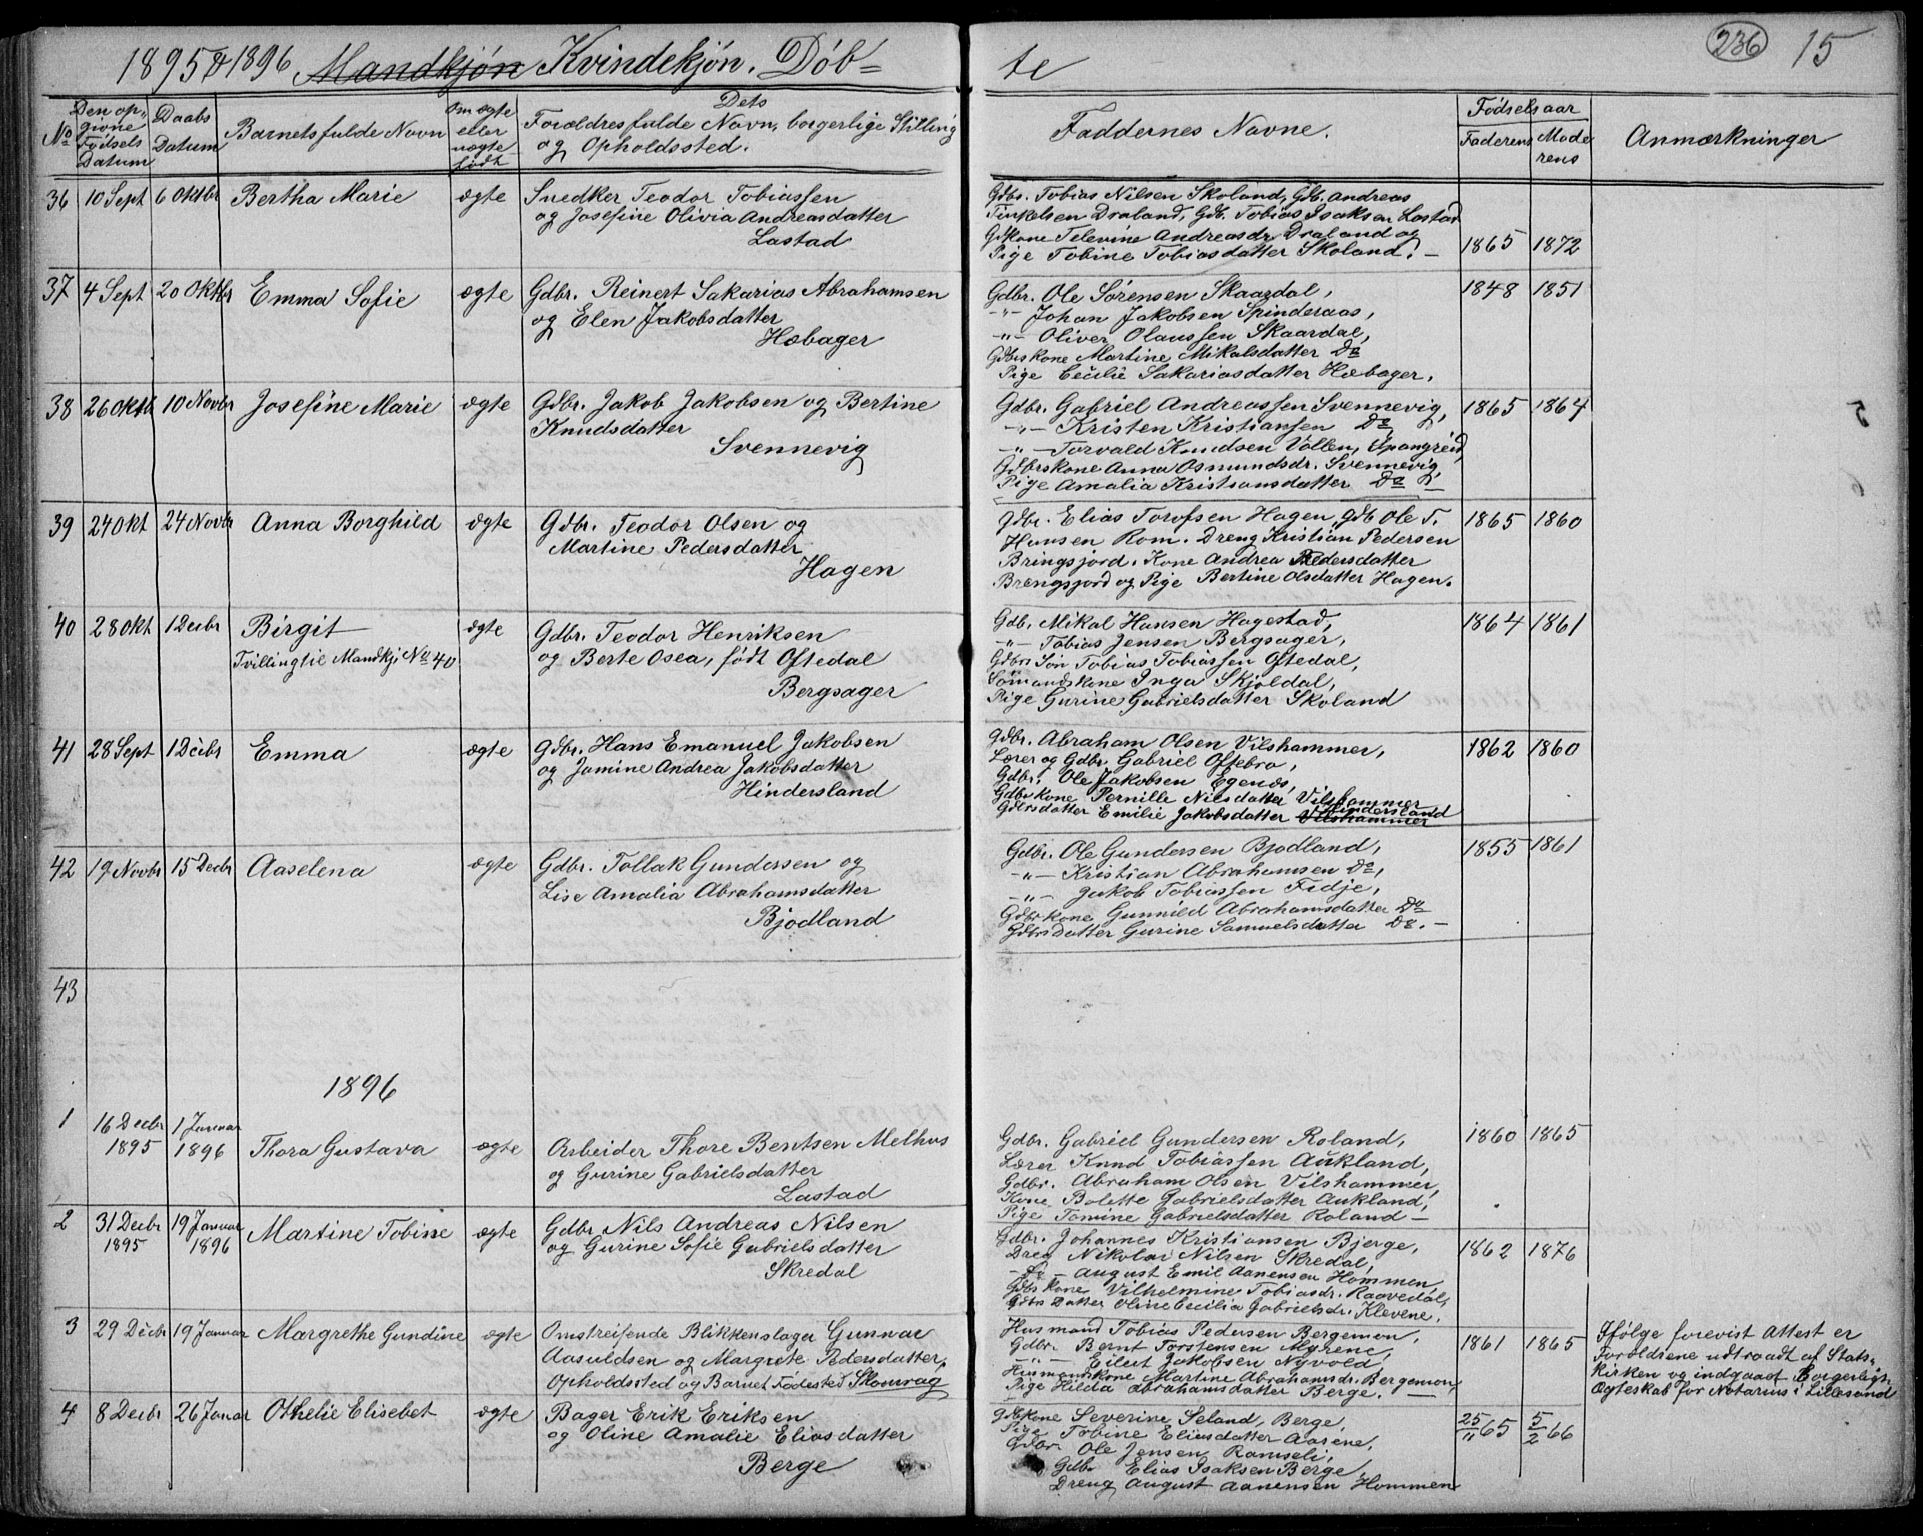 1895 & 1896 Mandkjön Kvindekjön. Döb= te 236 15
No Den opgivne Födsels Datum Daabs Datum Barnets fulde Navn Om ægte eller uægte födt Dets Forældres fulde Navn, borgerlige Stilling og Opholdssted. Faddernes Navne. Födselsaar Faderens Moderens Anmærkninger
36 10 Sept 6 Oktbr Bertha Marie ægte Snedker Teodor Tobiassen
og Josefine Olivia Andreasdatter
Lastad
Gdbr. Tobias Nilsen Skoland, Gdb. Andreas
Tinkelsen Draland, Gdb. Tobias Isaksen Lastad
Gdbkone Televine Andreasdr. Draland og
Pige Tobine Tobiasdatter Skoland. – 1865 1872
37 4 Sept 20 Oktbr Emma Sofie ægte Gdbr. Reinert Sakarias Abrahamsen
og Elen Jakobsdatter
Hæbager
Gdbr. Ole Sörensen Skaardal, 1848 1851
-"- Johan Jakobsen Spinderaas,
-"- Oliver Olaussen Skaardal,
Gdbrskone Martine Mikalsdatter Do
Pige Cecilie Sakariasdatter Hæbager.
38 26 Oktb 10 Novbr Josefine Marie ægte Gdbr. Jakob Jakobsen og Bertine
Knudsdatter
Svennevig
Gdbr. Gabriel Andreassen Svennevig, 1865 1864
-"- Kristen Kristiansen Do,
-"- Torvald Knudsen Vollen, Spangreid,
Gdbrskone Anna Osmundsdr. Svennevig,
Pige Amalia Kristiansdatter Do
39 24 Okt 24 Novbr Anna Borghild ægte Gdbr. Teodor Olsen og
Martine Pedersdatter
Hagen
Gdbr. Elias Torofsen Hagen, Gdb Ole T. 1865 1860
Hansen Rom. Dreng Kristian Pedersen
Bringsjord. Kone Andrea Pedersdatter
Brengsjord og Pige Bertine Olsdatter Hagen.
40 28 Okt 1 Decbr Birgit ægte Gdbr. Teodor Henriksen
Tvilling til Mandkj. No 40 og Berte Osea, födt Oftedal
Bergsager
Gdb. Mikal Hansen Hagestad, 1864 1861
-"- Tobias Jensen Bergsager,
Gdbrs Sön Tobias Tobiassen Oftedal,
Sömandskone Inga Skjoldal,
Pige Gurine Gabrielsdatter Skoland
41 28 Sept 1 Decbr Emma ægte Gdbr. Hans Emanuel Jakobsen
og Jamine Andrea Jakobsdatter
Hindersland
Gdbr. Abraham Olsen Vilshammer, 1862 1860
Lærer og Gdbr. Gabriel Oftebro,
Gdbr. Ole Jakobsen Egenæs,
Gdbrkone Pernille Nilsdatter Vilshammer
Gdbrsdatter Emilie Jakobsdatter Vilshammer Hindersland
42 19 Novbr 15 Decbr Aaselena ægte Gdbr. Tollak Gundersen og
Lise Amalia Abrahamsdatter
Bjodland
Gdbr. Ole Gundersen Bjodland, 1855 1861
-"- Kristian Abrahamsen Do,
-"- Jakob Tobiassen Fidje,
Gdbrkone Gunnild Abrahamsdatter Do
Gdbrs Datter Gurine Samuelsdatter Do. –
43
1896
1 16 Decbr 1895 1 Januar 1896 Thora Gustava ægte Arbeider Thore Bentsen Melhus
og Gurine Gabrielsdatter
Lastad
Gdbr. Gabriel Gundersen Roland, 1860 1865
Lærer Knud Tobiassen Aukland,
Gdbr. Abraham Olsen Vilshammer,
Kone Bolette Gabrielsdatter Aukland,
Pige Tomine Gabrielsdatter Roland –
2 31 Decbr 1895 19 Januar 1896 Martine Tobine ægte Gdbr Nils Andreas Nilsen
og Gurine Sofie Gabrielsdatter
Skredal
Gdbr. Johannes Kristiansen Bjerge, 1862 1876
Dreng Nikolai Nilsen Skredal,
-Do- August Emil Aanensen Hommen
Gdbs kone Vilhelmine Tobiasdr. Raavedal,
Gdbrs Datter Oline Cecilia Gabrielsdr. Klevene.
3 29 Decbr 19 Januar Margrethe Gundine ægte Omstreifende Blikkenslager Gunnar
Aasuldsen og Margrete Pedersdatter,
Opholdssted og Barnets Fødested Skomrag
Husmand Tobias Pedersen Bergemon, 1861 1865
Gdbr. Bernt Torstensen Myrene,
-"- Eilert Jakobsen Nyvold,
Husmandskone Martine Abrahamsdr. Bergemon,
Pige Hilda Abrahamsdatter Berge. –
Ifölge forevist Attest er
Foreldrene udtraadt af Stats-
kirken og indgaaet Borgerligt
Ægteskab for Notarius i Lillesand
4 8 Decbr 26 Januar Othelie Elisebet ægte Bager Erik Eriksen
og Oline Amalie Eliasdatter
Berge
Gdbkone Severine Seland, Berge, 25/11 65 5/2 66
Pige Tobine Eliasdatter Aasene,
Gdbr Ole Jensen Ramseli,
Gdbr Elias Isaksen Berge,
Dreng August Aanensen Hommen